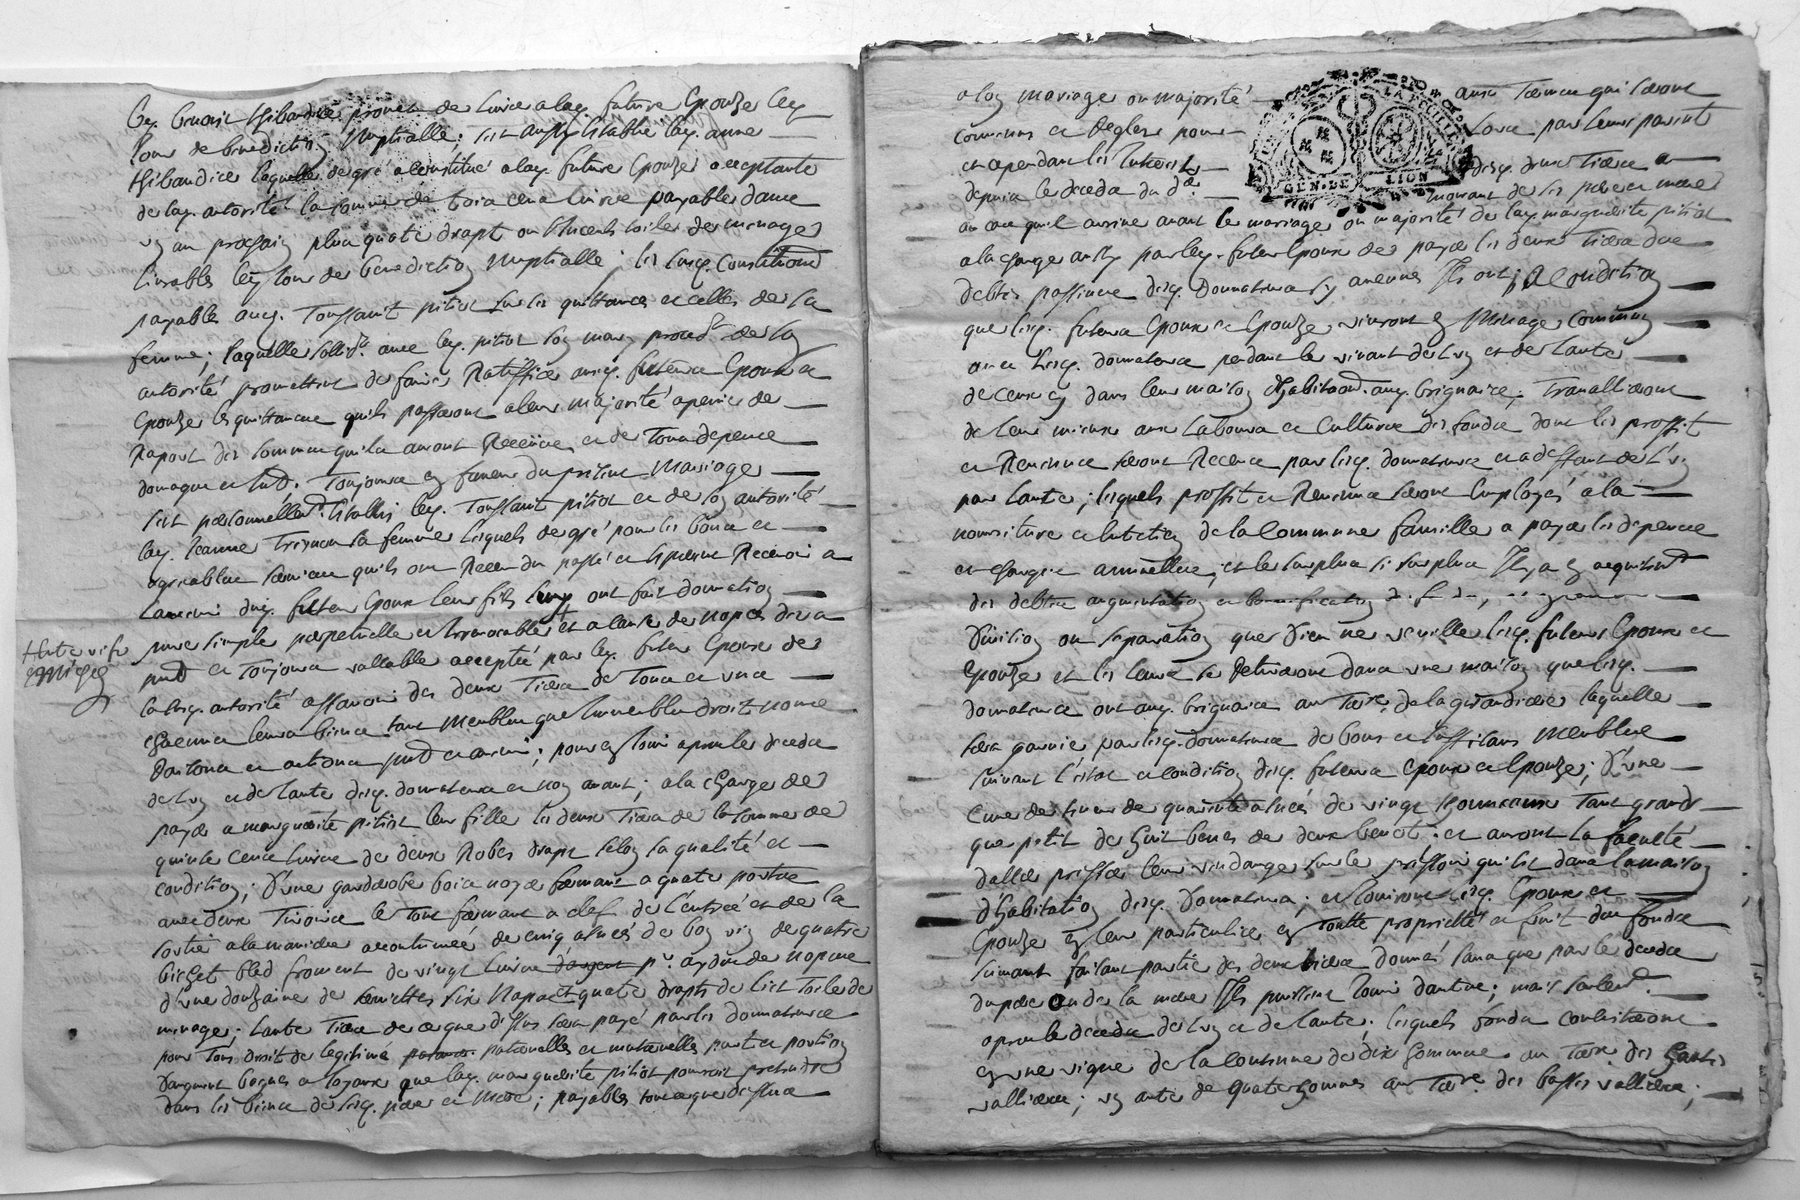 promet de livrer a lad. future Epouze le
Jour de benediction Nuptialle; s'est aussy establie lad. anne
Thibaudier laquelle de gré a constitué a lad. future Epouze acceptante
de lad. autorité la somme de trois cens livres payables dans
un an prochain plus quatre draps ou linceuls toiles de menage
livrables led. jour de benediction Nuptialle; les susd. constitutions
payables aud. Toussaint pitiot sur ses quittances et celles de sa
femme; laquelle avec led. pitiot son mary de son
autorité promettent de faire Ratiffier ausd. futurs Epoux et
Epouze les quittances quils passeront a leur majorité a peine de
Raport des sommes quils auront Receües et de tous depens
domages et Toujours en faveur du present Mariage
s'est personnellem.t establis led. Toussaint pitiot et de son autorité
lad. Jeanne sa femme lesquels de gré pour les bons et
agreables services quils ont Receu du passé et esperent Recevoir a
l'avenir dud. futur Epoux leur fils ont fait donation
pure simple perpetuelle et Irrevocable et a cause de nopces des a
pnt et Toujours vallable acceptée par led. futur Epoux de
lasusd. autorité assavoir des deux Tiers de Tous et uns
chacuns leurs biens tant Meubles que Immeubles droit noms
Raisons et actions pnt et avenir; pour en jouir apres le decedz
de l'un et de l'autre desd. donateurs et non avant; a la charge de
payer a marguerite pitiot leur fille les deux Tiers de la somme de
quinze cents livres de deux Robes drapt selon sa qualité et
condition; d'une garderobe bois noyer fermant a quatre portes
avec deux Tiroirs le tout fermant a clef de l'entrée et de la
sortie a la maniere accoutumée de cinq asnées de bon vin de quatre
bichet bled froment de vingt livres d'argent pr. ayder de nopces
d'une douzaine de serviettes six Napes quatre draps de lict Toiles de
menage; l'autre Tiers de ce que dessus sera payé par les donateurs
pour tous droit de legitime paternelles et maternelles part et portion
d'augment bagues et joyaux que lad. marguerite pitiot pourroit pretendre
dans les biens de sesd. pere et Mere; payables tout ce que dessus
a son mariage ou majorité
convenus et Reglés pour
et cependant les Interests
depuis le decedz du d.er
GEN. DE LION
au cas quil arrive avant le mariage ou majorité de lad. marguerite pitiot
a la charge aussy par led. futur Epoux de payer les deux Tiers des
debtes passives desd. donateurs sy aucunes Ils ont; a condition
que lesd. futurs Epoux et Epouze vivront en Menage commun
avec lesd. donateurs pendant le vivant de l'un et de l'autre
de ceux cy dans leur maison d'habitaon. aud. brignais; Travallieront
de leur mieux aux labours et cultures des fonds dont les proffit
et Revenus seront Receus par lesd. donateurs et a deffaut de l'un
par l'autre; lesquels proffit et Revenus seront Employés a la
nourriture et entretien de la Commune famille a payer les depences
et charges annuelles, et le surplus si surplus Il y a en acquittem.t
des debtes augmentation et bonnification
division ou separation que Dieu ne veuille lesd. futurs Epoux et
Epouze et les leurs se Retireront dans une maison que lesd.
donateurs ont aud. brignais au Terre. de la girandiere laquelle
sera garnie par lesd. donateurs de bons et suffisans Meubles
suivant l'estat et condition desd. futurs Epoux et Epouze; d'une
Cuve de tenue de quarante asnées de vingt tonneaux Tant grand
que petit de huit bennes de deux benots et auront la faculté
d'aller presser leur vendange sur le pressoir qui est dans la maison
d'habitation desd. donateurs; et jouiront lesd. Epoux et
Epouze en leur particulier en toutte proprietté et fruit des fonds
suivant faisant partie des deux tiers donnés sans que par le decedz
du pere ou de la mere Ils puissent jouir d'autres; mais seulem.t
apres le decedz de l'un et de l'autre; lesquels fonds consisteront
en une vigne de la contenue de dix hommes au Terre. des hautes
vallieres; un autre de quatre hommes au Terre. des basses vallieres;